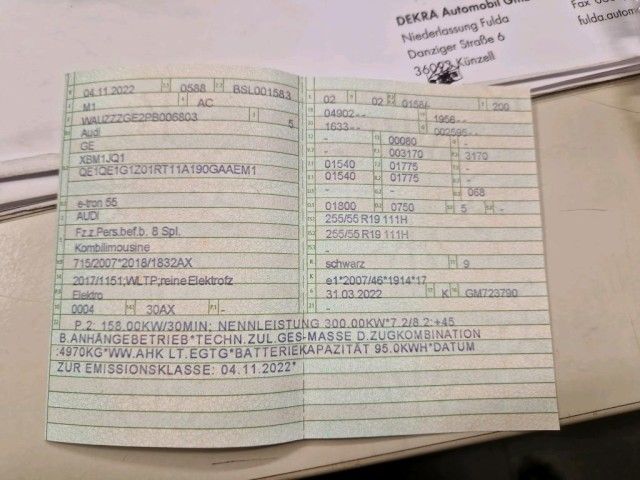 DEKRA Automobil
Niederlassung Fulda
Danziger Straße 6
36093 Künzell
Fax
fulda.automo
04.11.2022 0588 BSL001583
M1 AC
WAUZZZGE2PB006803 5
Audi
GE
XBM1JQ1
QE1QE1G1Z01RT11A190GAAEM1
e-tron 55
AUDI
Fz.z.Pers.bef.b. 8 Spl.
Kombilimousine
715/2007*2018/1832AX
2017/1151;WLTP;reine Elektrofz
Elektro
0004 30AX -
02 02 0158/ 200
04902-- 1956--
1633-- 002595--
- 00080 -
- 003170 3170
01540 01775 -
01540 01775 -
- - 068
01800 0750 5 -
255/55 R19 111H
255/55 R19 111H
-
schwarz 9
e1*2007/46*1914*17
31.03.2022 K GM723790
P.2: 158.00KW/30MIN; NENNLEISTUNG 300.00KW*7.2/8.2:+45
B.ANHÄNGEBETRIEB*TECHN.ZUL.GES-MASSE D.ZUGKOMBINATION
:4970KG*WW.AHK LT.EGTG*BATTERIEKAPAZITÄT 95.0KWH*DATUM
ZUR EMISSIONSKLASSE: 04.11.2022*